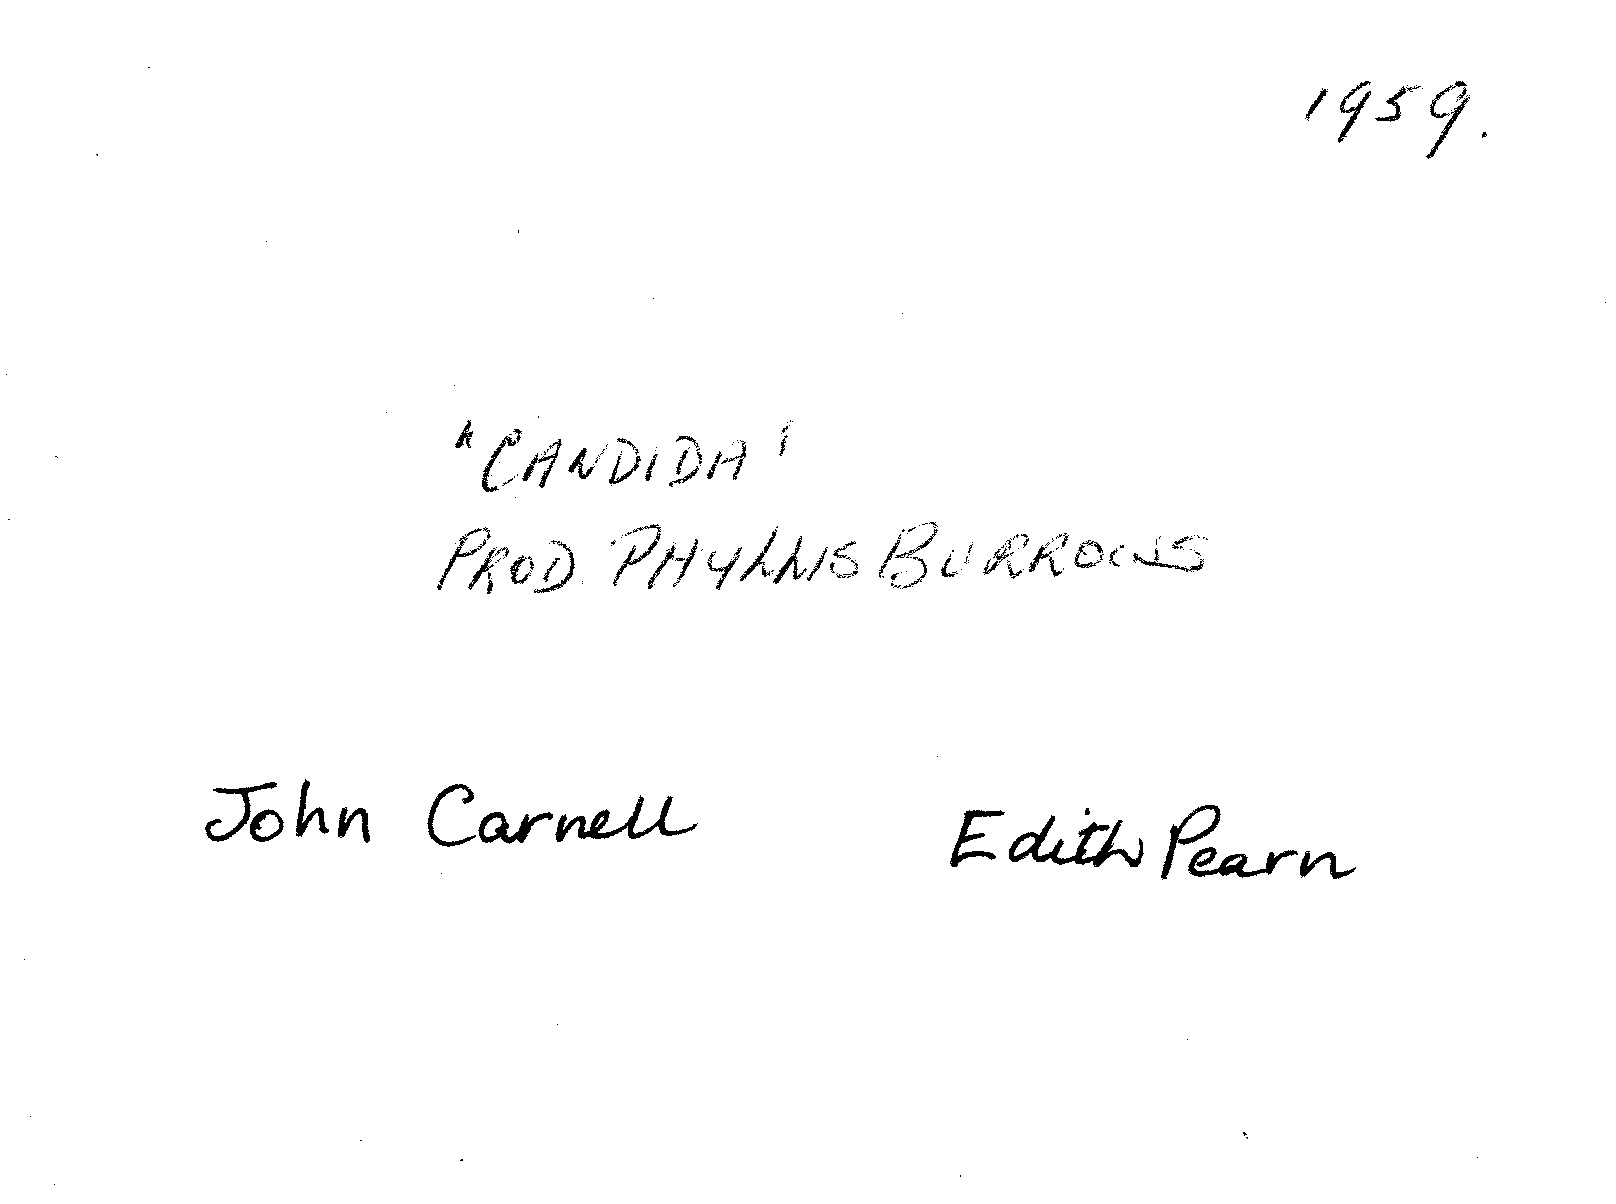 1959.
"CANDIDA'
PROD. PHYLLIS BURROWS
John Carnell
Edith Pearn